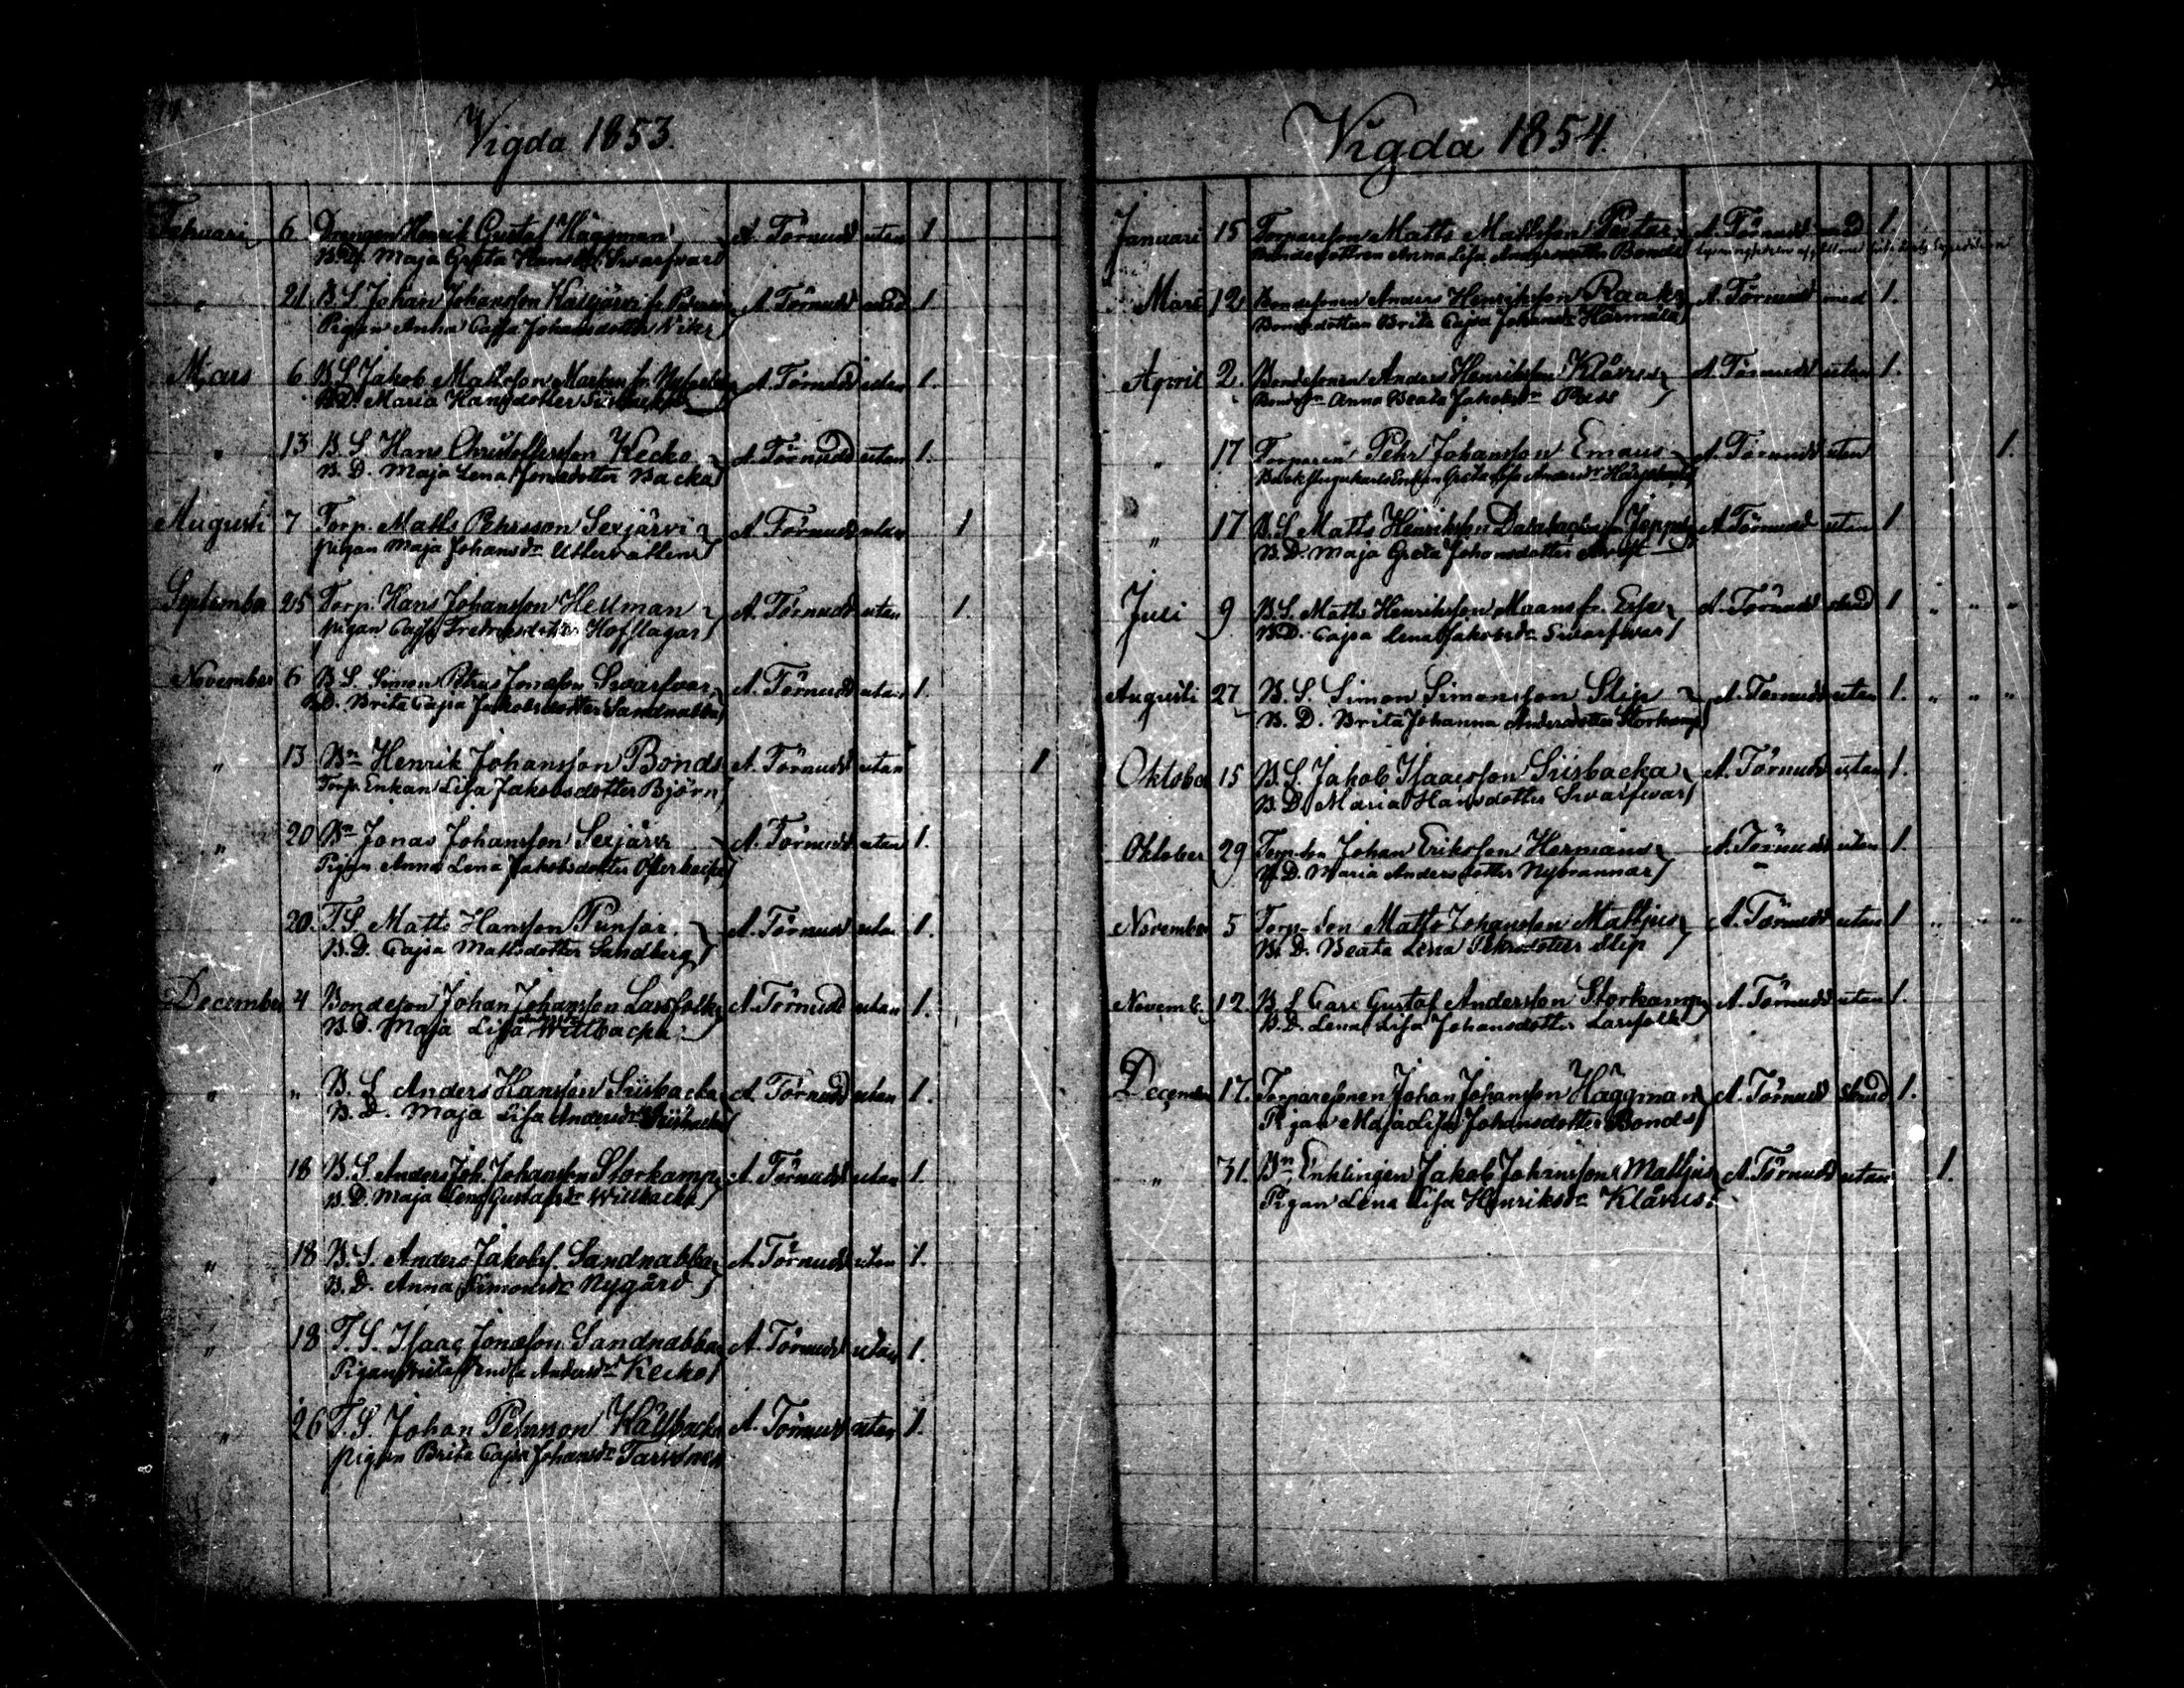 Vigda 1853.
Februari 6 Drengen Henrik Gustaf Häggman A. Törnudd utan 1
B.D. Maja Greta Hansd. Svarfvar
" 21 B.S. Johan Johansson Kaitjärvi fr. A. Törnudd 1
Pigan Anna Cajsa Johansdotter
Mars 6 B.S. Jakob Mattsson fr. A. Törnudd utan 1.
B.D. Maria Hansdotter
" 13 B.S. Hans Christoffersson Kecko A. Törnudd utan 1.
B.D. Maja Lena Jonsdotter Backa
Augusti 7 Torp. Matts Pehrsson Sexjärvi A. Törnudd utan 1
pigan Maja Johansdr
September 25 Torp. Hans Johansson Hellman A. Törnudd utan 1.
pigan Cajsa Fredriksdotter Hofslagar
November 6 B.S. Simon Petrus Jonsson Svarfvar A. Törnudd utan 1.
B.D. Brita Cajsa Jakobsdotter Sandnabba
" 13 Bn Henrik Johansson Bonds A. Törnudd utan 1
Torp. Enkan Lisa Jakobsdotter Björn
" 20 Bn Jonas Johansson Sexjärvi A. Törnudd utan 1.
Pigan Anna Lena Jakobsdotter
20. T.S. Matts Hansson Punsar A. Törnudd utan 1.
B.D. Cajsa Mattsdotter Sandberg
December 4 Bondeson Johan Johansson Lassfolk A. Törnudd utan 1.
B.D. Maja Lisa Willbacka
" " B.S. Anders Hansson Siisbacka A. Törnudd utan 1.
B.D. Maja Lisa Andersdr Siisbacka
" 18 B.S. Anders Joh. Johansson Storkamp A. Törnudd utan 1.
B.D. Maja Lena Gustafsdr Willbacka
" 18 B.S. Anders Jakobs. Sandnabba A. Törnudd utan 1.
B.D. Anna Simonsdr Nygård
" 18 T.S. Isaac Jonsson Sandnabba A. Törnudd utan 1.
Pigan Brita Andersdr Kecko
" 26 T.S. Johan Pehrsson Källbacka A. Törnudd utan 1.
pigan Brita Cajsa Johansdr
Vigda 1854.
Januari 15 Torpareson Matts Mattsson A. Törnudd med 1.
Bondedottren Anna Lisa Andersdotter Bonds
Mars 12 Bondesonen Anders Henriksson Raak A. Törnudd med 1.
Bondedottern Brita Cajsa Johansdr Härmälä
April 2. Bondesonen Anders Henriksson Klåvus A. Törnudd utan 1.
Anna Beata Jakobsdr
" 17 Torparen Pehr Johansson Emaus A. Törnudd utan 1.
Enkan Greta Lisa Andersdr
" 17 B.S. Matts Henriksson Dalabacka fr. Jeppo A. Törnudd utan 1
B.D. Maja Greta Johansdotter
Juli 9 B.S. Matts Henriksson Maans fr. A. Törnudd 1 " " "
B.D. Cajsa Lena Jakobsdr Svarfvar
Augusti 27 B.S. Simon Simonsson Slip A. Törnudd utan 1. " " "
B.D. Brita Johanna Andersdotter Storkamp
Oktober 15 B.S. Jakob Isaacsson Siisbacka A. Törnudd utan 1.
B.D. Maria Hansdotter Svarfvar
Oktober 29 Torp.son Johan Eriksson Hermans A. Törnudd utan 1.
B.D. Maria Andersdotter Nybrannar
November 5 Torp-Son Matts Johansson Mattjus A. Törnudd utan 1 " " "
B.D. Beata Lena Pehrsdotter Slip
Novemb. 12. B.S. Carl Gustaf Andersson Storkamp A. Törnudd utan 1.
B.D. Lena Lisa Johansdotter Lassfolk
December 17. Torparesonen Johan Johansson Häggman A. Törnudd 1.
Pigan Maja Lisa Johansdotter Bonds
" 31. Bn Enklingen Jakob Johansson Mattjus A. Törnudd utan 1.
Pigan Lena Lisa Henriksdr Klåvus.